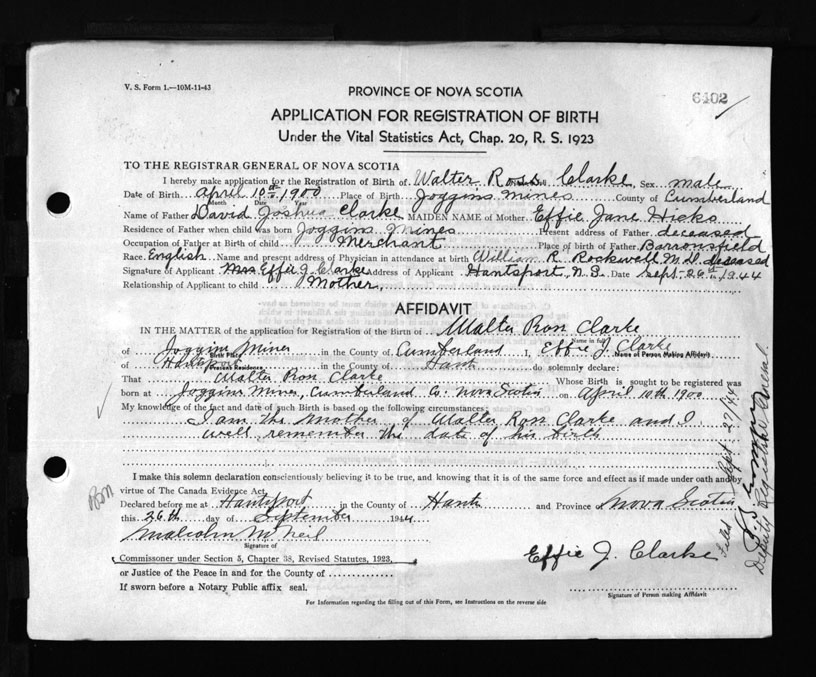 V. S. Form 1.—10M-11-43
PROVINCE OF NOVA SCOTIA
6402
APPLICATION FOR REGISTRATION OF BIRTH
Under the Vital Statistics Act, Chap. 20, R. S. 1923
TO THE REGISTRAR GENERAL OF NOVA SCOTIA
I hereby make application for the Registration of Birth of Walter Ross Clarke, Sex male
Date of Birth April 10th 1900 Place of Birth Joggins Mines County of Cumberland
Month Date Year
Name of Father David Joshua Clarke MAIDEN NAME of Mother Effie Jane Hicks
Residence of Father when child was born Joggins Mines Present address of Father deceased
Occupation of Father at Birth of child Merchant Place of birth of Father Barronsfield
Race English Name and present address of Physician in attendance at birth William R. Rockwell M.D. deceased
Signature of Applicant Mrs Effie J Clarke Address of Applicant Hantsport, N.S. Date Sept. 26th 1944
Relationship of Applicant to child Mother
AFFIDAVIT
IN THE MATTER of the application for Registration of the Birth of Walter Ross Clarke
Name in full
of Joggins Mines in the County of Cumberland I, Effie J. Clarke
Birth Place Name of Person Making Affidavit
of Hantsport in the County of Hants do solemnly declare:
Present Residence
That Walter Ross Clarke Whose Birth is sought to be registered was
born at Joggins Mines, Cumberland Co. Nova Scotia on April 10th 1900
My knowledge of the fact and date of such Birth is based on the following circumstances:
I am the Mother of Walter Ross Clarke and I
well remember the date of his birth
I make this solemn declaration conscientiously believing it to be true, and knowing that it is of the same force and effect as if made under oath and by
virtue of The Canada Evidence Act.
Declared before me at Hantsport in the County of Hants and Province of Nova Scotia
this 26th day of September 1944
Malcolm McNeil
Signature of
Commissioner under Section 5, Chapter 38, Revised Statutes, 1923,
Effie J. Clarke
or Justice of the Peace in and for the County of
If sworn before a Notary Public affix seal.
Signature of Person making Affidavit
For Information regarding the filling out of this Form, see Instructions on the reverse side
Filed Sept 27/44
Deputy Registrar General